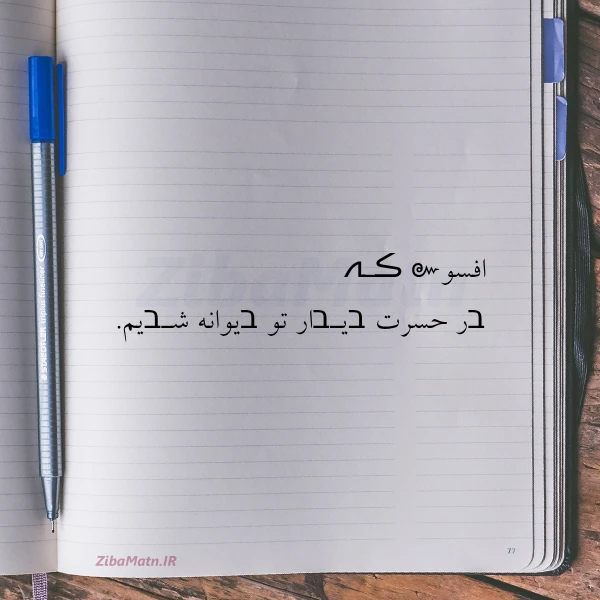 افسوس که
در حسرت دیدار تو دیوانه شدیم.
ZibaMatn
77
ZibaMatn.IR